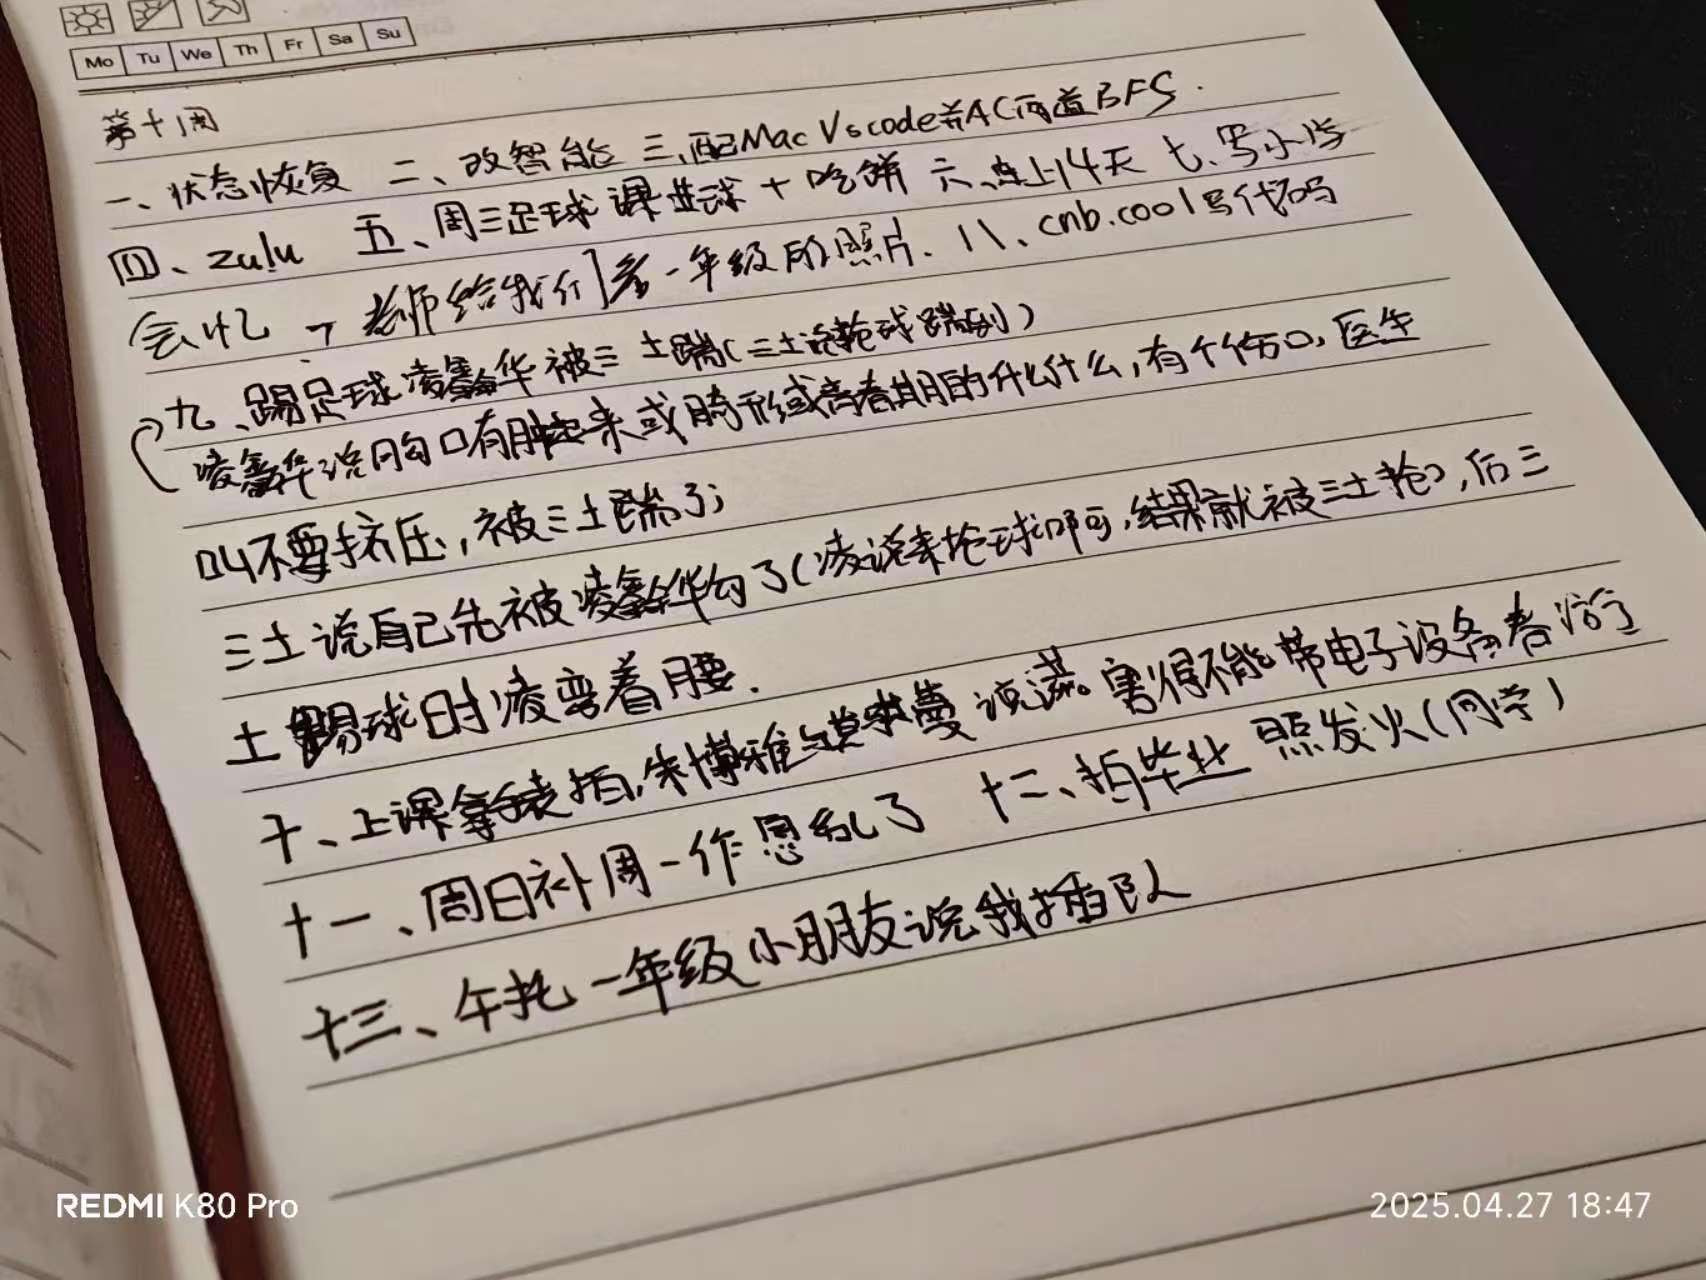 Mo Tu We Th Fr Sa Su
第十周
一、状态恢复 二、改智能 三、配Mac Vscode并AC两道BFS.
四、zulu 五、周三足球课进球+吃饼 六、连上14天 七、写小学
会忆，老师给我们看一年级的照片. 八、cnb.cool写代码
九、踢足球凌鑫华被三土踹(三土说抢球踹到)
凌鑫华说胸口有肿起来或畸形或青春期的什么什么,有个伤口,医生
叫不要挤压,被三土踹了;
三土说自己先被凌鑫华勾了(凌说来抢球啊,结果就被三土抢),后三
土踢球时凌弯着腰.
十、上课拿手表拍,朱博雅与莫求曼说谎。害得不能带电子设备春游
十一、周日补周一作息乱了 十二、拍毕业照发火(同学)
十三、午托一年级小朋友说我插队
REDMI K80 Pro
2025.04.27 18:47